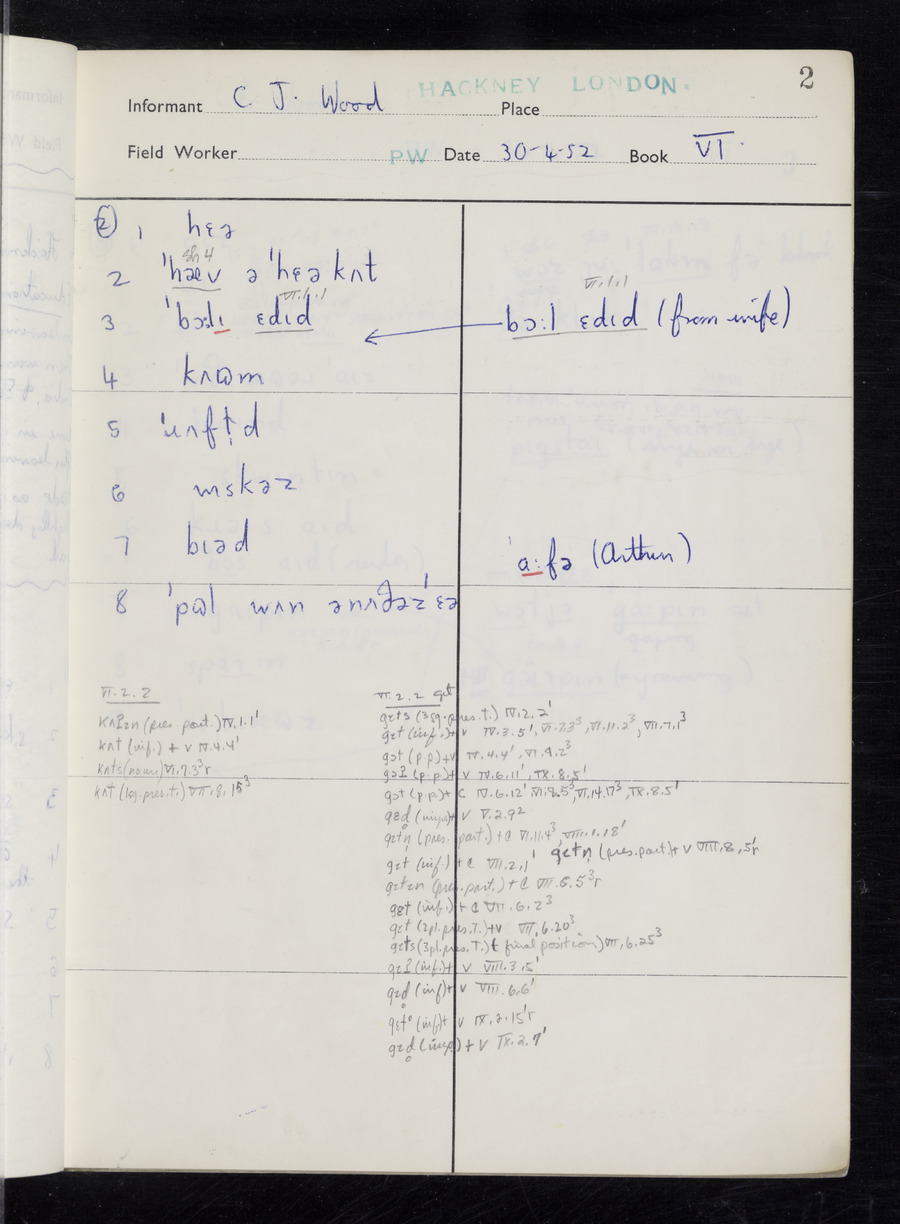 HACKNEY LONDON. 2
Informant C J. Wood Place
Field Worker PW Date 30-4-52 Book VI.
② 1 hɛə
sh 4
2 ˈhæv ə ˈhɛəkʌt
VI.1.1
3 ˈbɔːlɪ ɛdɪd
VI.1.1
bɔːl ɛdɪd (from wife)
4 kɹʌɷm
5
6 mskəz
7 bɪəd
ˈaːfə (Arthur)
8 ˈpɷl wʌn ənʌðəzˈɛə
VI.2.2
kʌʔɪn (pres. part.) IV.1.1'
kʌt (inf.) + V IV.4.4'
kʌts (noun) VI.7.3³r
VI.2.2 get
gɛts (3sg. pres. t.) IV.2.2'
gɛt (inf.)+ V IV.3.5', VI.7.3³, VI.11.2³, VII.7.1³
gɔt (p.p)+V IV.4.4', VI.9.2³
gɔʔ (p.p)+ V IV.6.11', IX.8.5'
gɔt (p.p)+ C IV.6.12' VI.14.17³, IX.8.5'
V V.2.9²
(pres. part.) + C VI.11.4³, VIII.1.18'
gɛt (inf.) + C VII.2.1'
(pres. part.)+ V VIII.8.5r
(pres. part.) + C VII.5.5³r
gɛt (inf.) + C VII.6.2³
gɛt (2pl. pres. T.)+V VII.6.20³
gɛts (3pl. pres. T.) (final position) VII.6.25³
gɛʔ (inf.)+ V VIII.3.5'
gɛd̥ (inf)+ V VIII.6.6'
(inf)+ V IX.2.15'r
+ V IX.2.7'